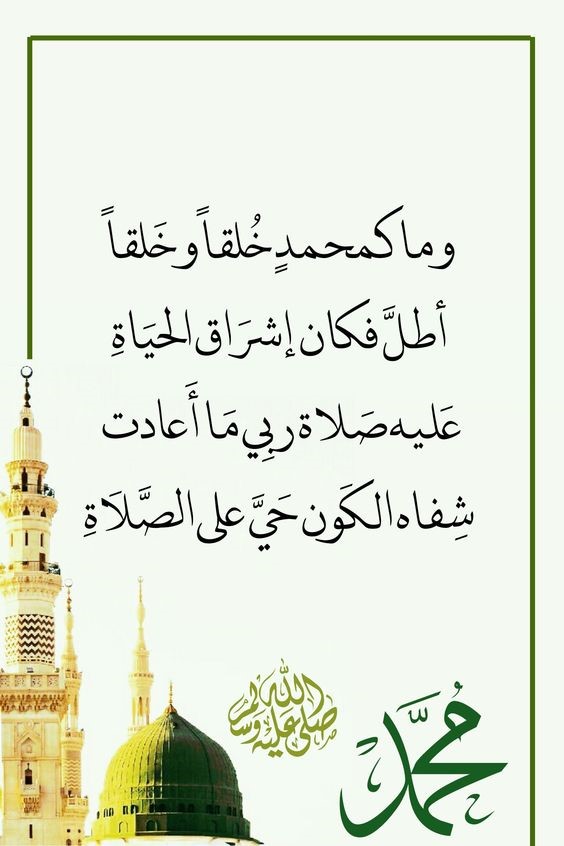 وما كمحمدٍ خُلقاً وخَلقاً
أطلَّ فكان إشرَاق الحيَاةِ
عَليه صَلاة ربِي مَا أَعادت
شِفاه الكَون حَيَّ على الصَّلَاةِ
صلى الله عليه وسلم
مُحمَّد